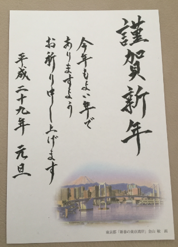 謹賀新年
今年もよい年で
ありますよう
お祈り申し上げます
平成二十九年 元旦